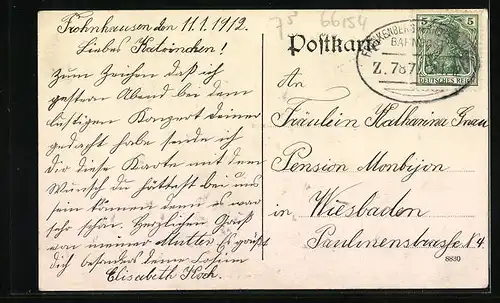 Frohnhausen den 11.1.1912.
Liebes Katrinchen!
Zum Zeichen daß ich
gestern Abend bei dem
lustigen Konzert deiner
gedacht habe sende ich
dir diese Karte mit dem
Wunsch du hättest bei uns
sein können denn es war
sehr schön. Herzlichen Gruß
von meiner Mutter Es grüßt
dich besonders deine
Elisabeth Koch.
75
66154
Postkarte
BAHN
Z.787
5 5
DEUTSCHES REICH
An
Fräulein Katharina
Pension Monbijou
in Wiesbaden
Paulinenstrasse N. 4.
8830